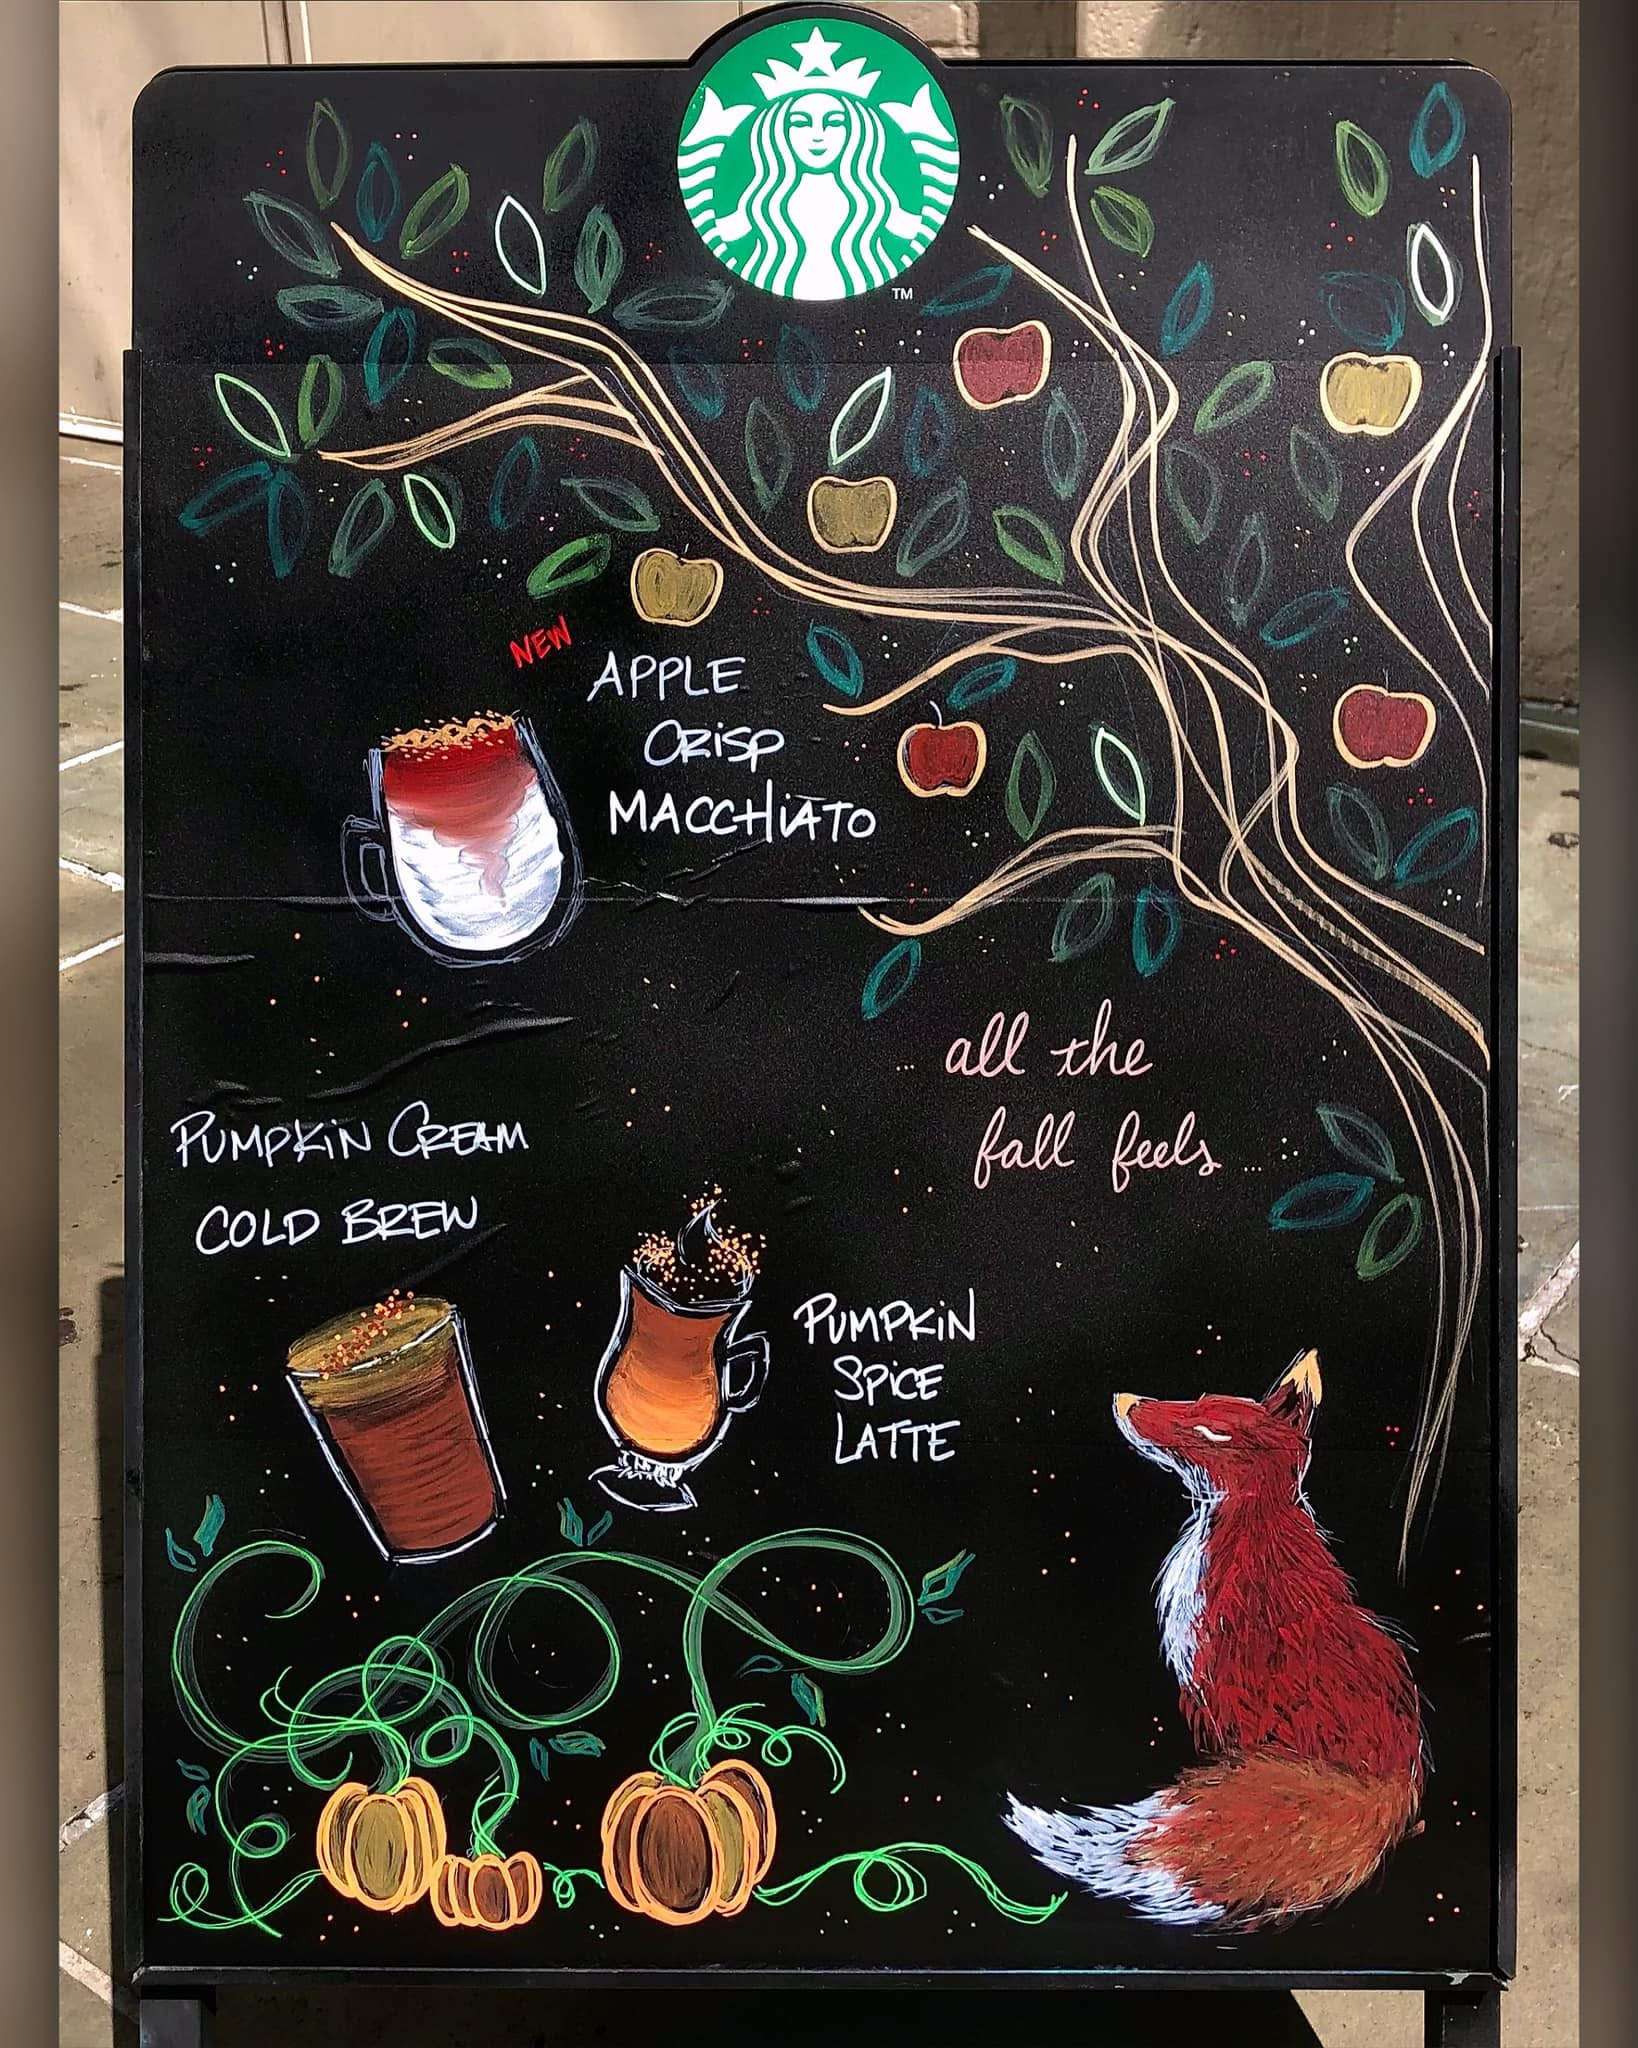 TM
NEW
APPLE
CRISP
MACCHIATO
... all the
fall feels ...
PUMPKIN CREAM
COLD BREW
PUMPKIN
SPICE
LATTE